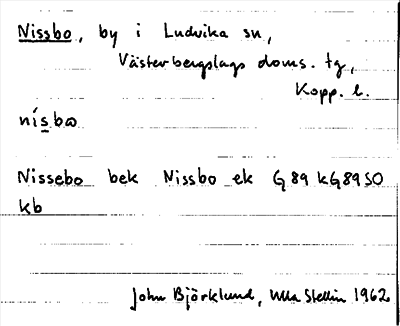 Nissbo, by i Ludvika sn,
Västerbergslags doms. tg,
Kopp. l.
nísbo
Nissebo bek Nissbo ek G89 kG89SO
kb
John Björklund, Ulla Stellin 1962